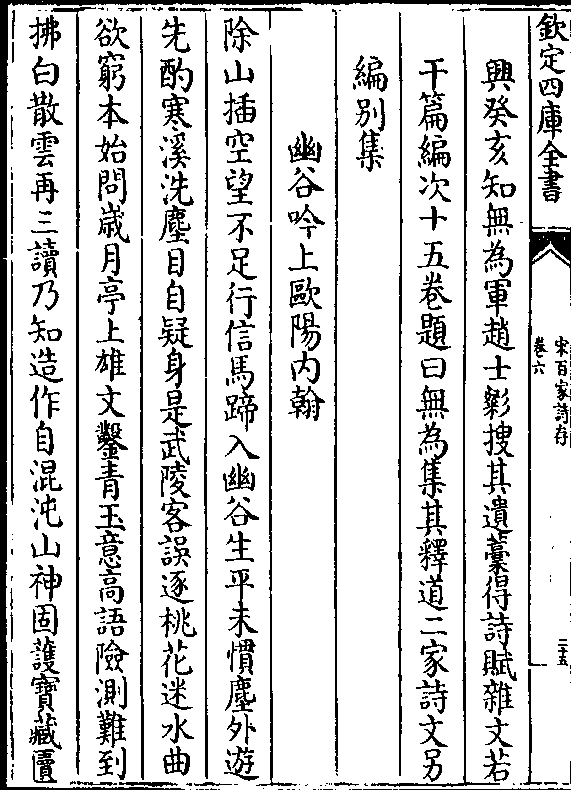 欽定四庫全書
宋百家詩存
卷六
二十五
興癸亥知無為軍趙士彩搜其遺藁得詩賦雜文若
干篇編次十五卷題曰無為集其釋道二家詩文另
編别集
幽谷吟上歐陽内翰
除山插空望不足行信馬蹄入幽谷生平未慣塵外遊
先酌寒溪洗塵目自疑身是武陵客誤逐桃花迷水曲
欲窮本始問歲月亭上雄文鑿青玉意高語險測難到
拂白散雲再三讀乃知造作自混沌山神固護寶藏匵